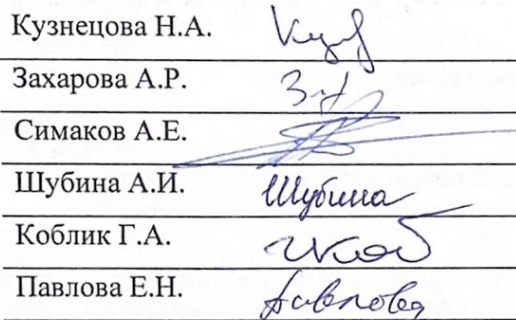 Кузнецова Н.А. Кузн
Захарова А.Р.
Симаков А.Е.
Шубина А.И. Шубина
Коблик Г.А.
Павлова Е.Н. Павлова